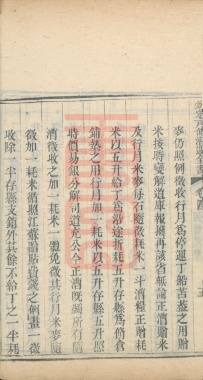 麥仍照例徵收行月爲停運丁船苫蓋之用贈
米按時變解道庫報撥再該省無論正米贈米
及行月米麥每石隨徵耗米一斗漕糧正贈耗
米以五升給丁爲沿途折耗五升存縣爲倉食
鋪墊之用行月加一耗米以五升存縣五升照
時價易銀分解司道充公今正漕旣蠲所有隨
漕徵收之加一耗米一體免徵其行月米麥隨
徵加一耗米循照江蘇諭貼貲錢之例盡一徵
收除一半存縣支銷外其餘不給丁之一半耗